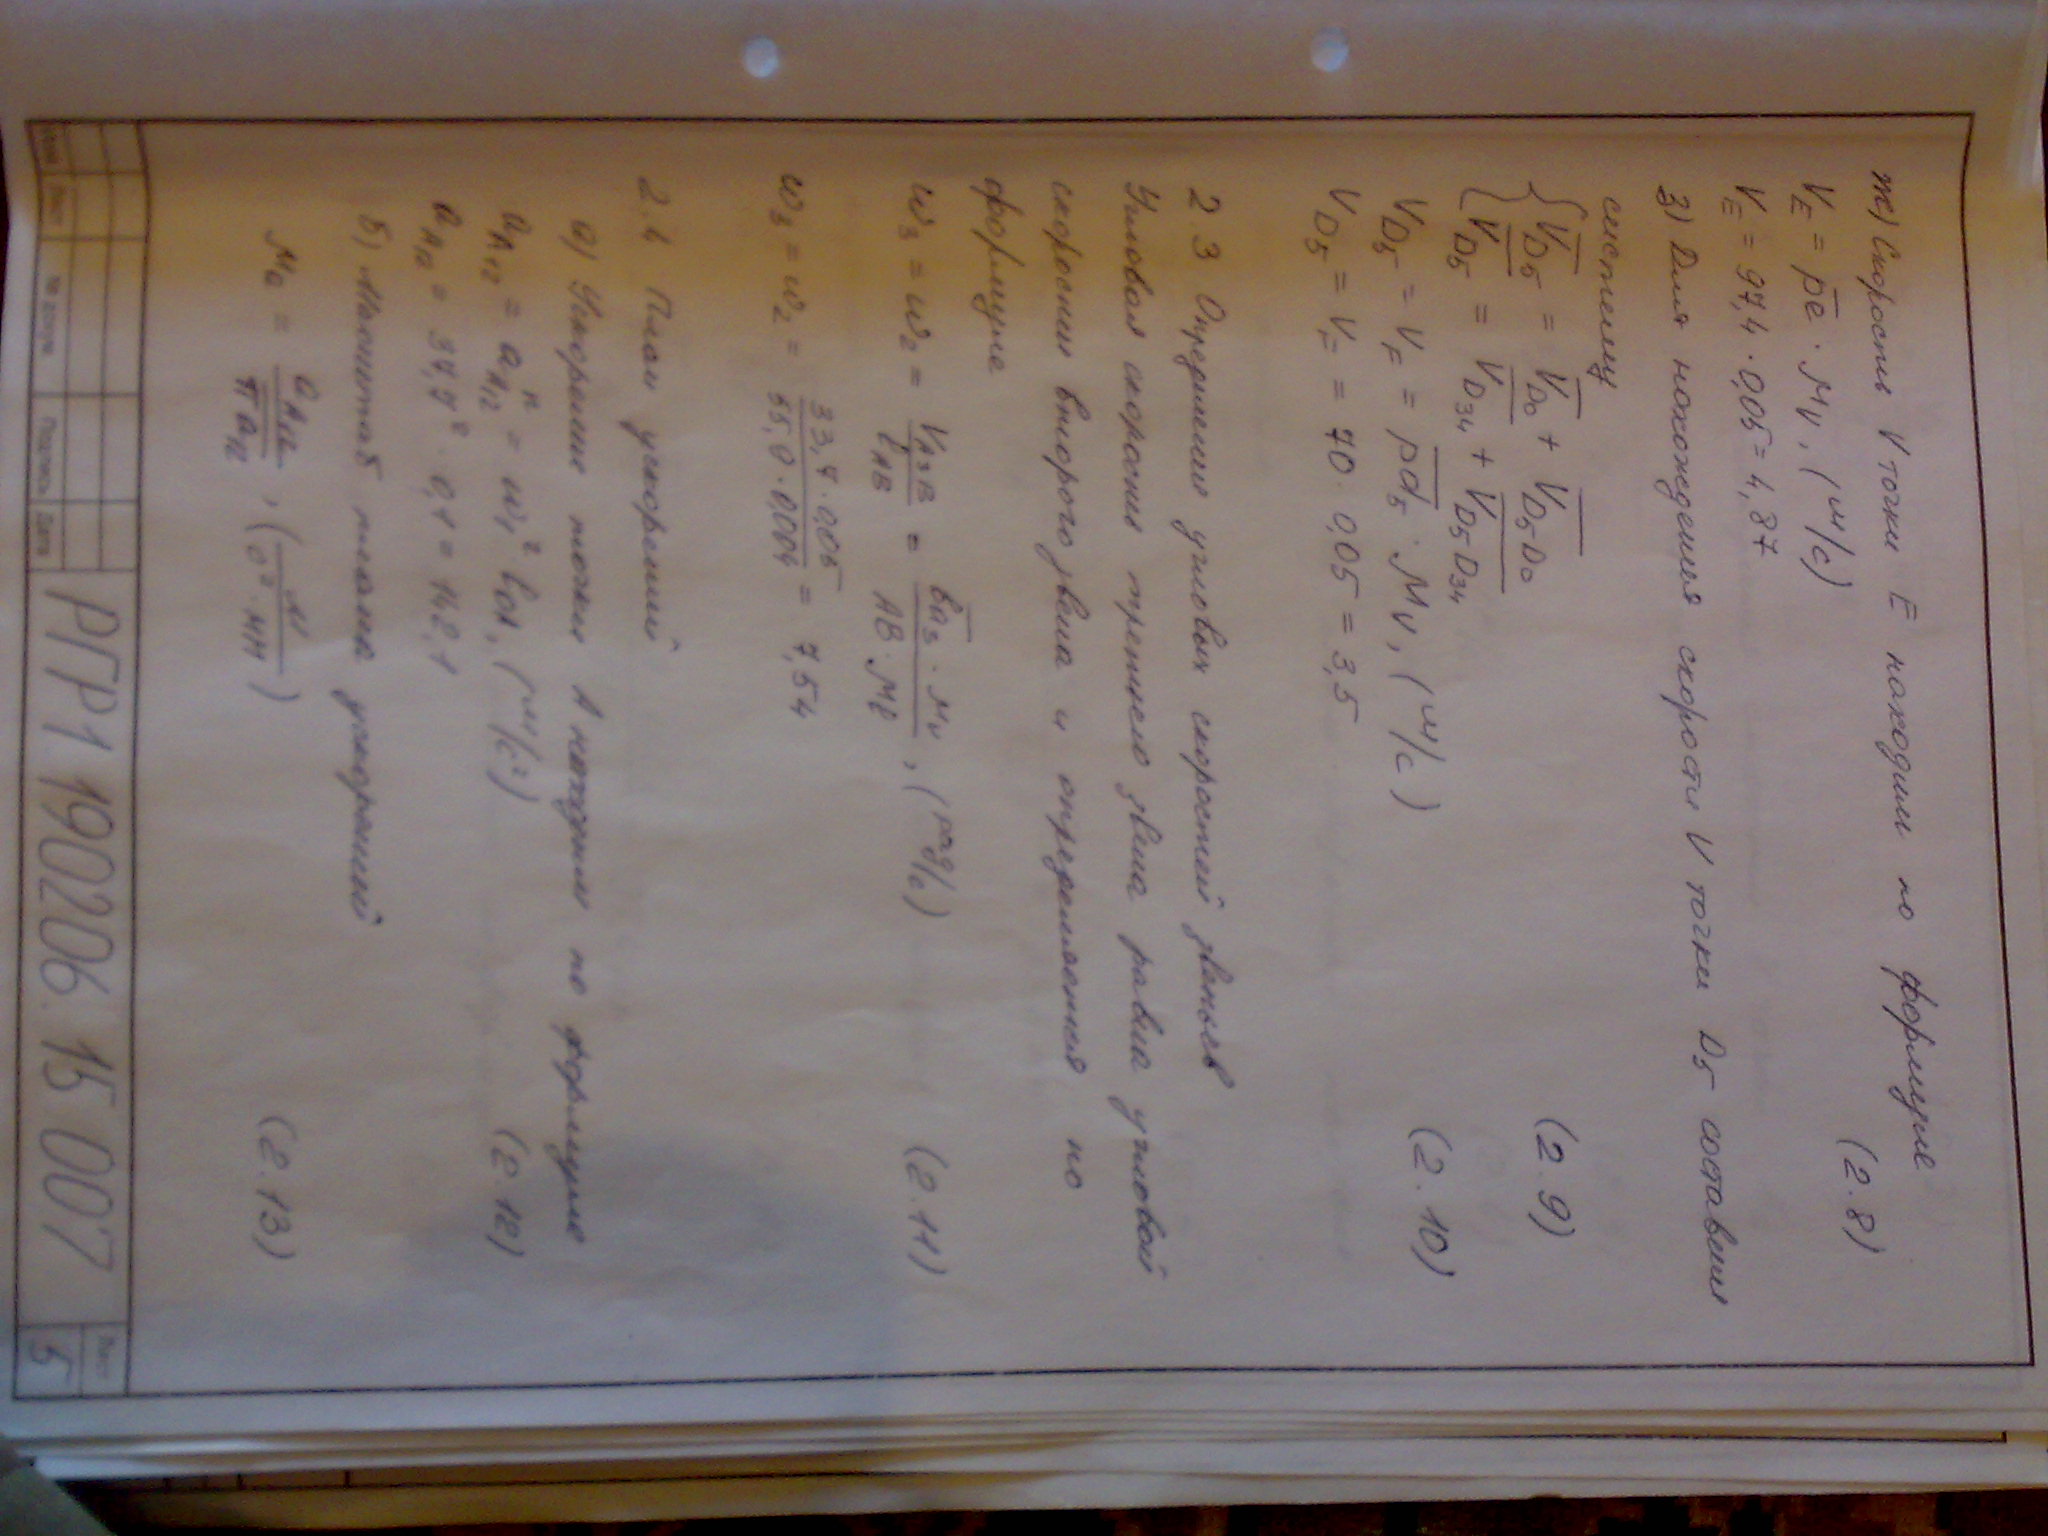 ж) Скорость V точки E находим по формуле
V_E = p̅e̅ · M_V, (м/с) (2.8)
V_E = 97,4 · 0,05 = 4,87
з) Для нахождения скорости V точки D5 составим
систему
{ V̅_D5 = V̅_D0 + V̅_D5D0
{ V̅_D5 = V̅_D34 + V̅_D5D34 (2.9)
V_D5 = V_F = p̅d̅5 · M_V, (м/с) (2.10)
V_D5 = V_F = 70 · 0,05 = 3,5
2.3 Определение угловых скоростей звеньев
Угловая скорость третьего звена равна угловой
скорости второго звена и определяется по
формуле
ω3 = ω2 = V_A3B / l_AB = b̅a̅3 · M_V / AB · M_l, (рад/с) (2.11)
ω3 = ω2 = 33,7 · 0,05 / 55,0 · 0,004 = 7,54
2.4 План ускорений
а) Ускорение точки A находим по формуле
a_A12 = a^n_A12 = ω1² l_OA, (м/с²) (2.12)
a_A12 = 37,7² · 0,1 = 142,1
б) Масштаб плана ускорений
M_a = a_A12 / π̅a̅12, (м / с² · мм) (2.13)
Изм Лист № докум. Подпись Дата
РГР1 190206. 15 007
Лист
5